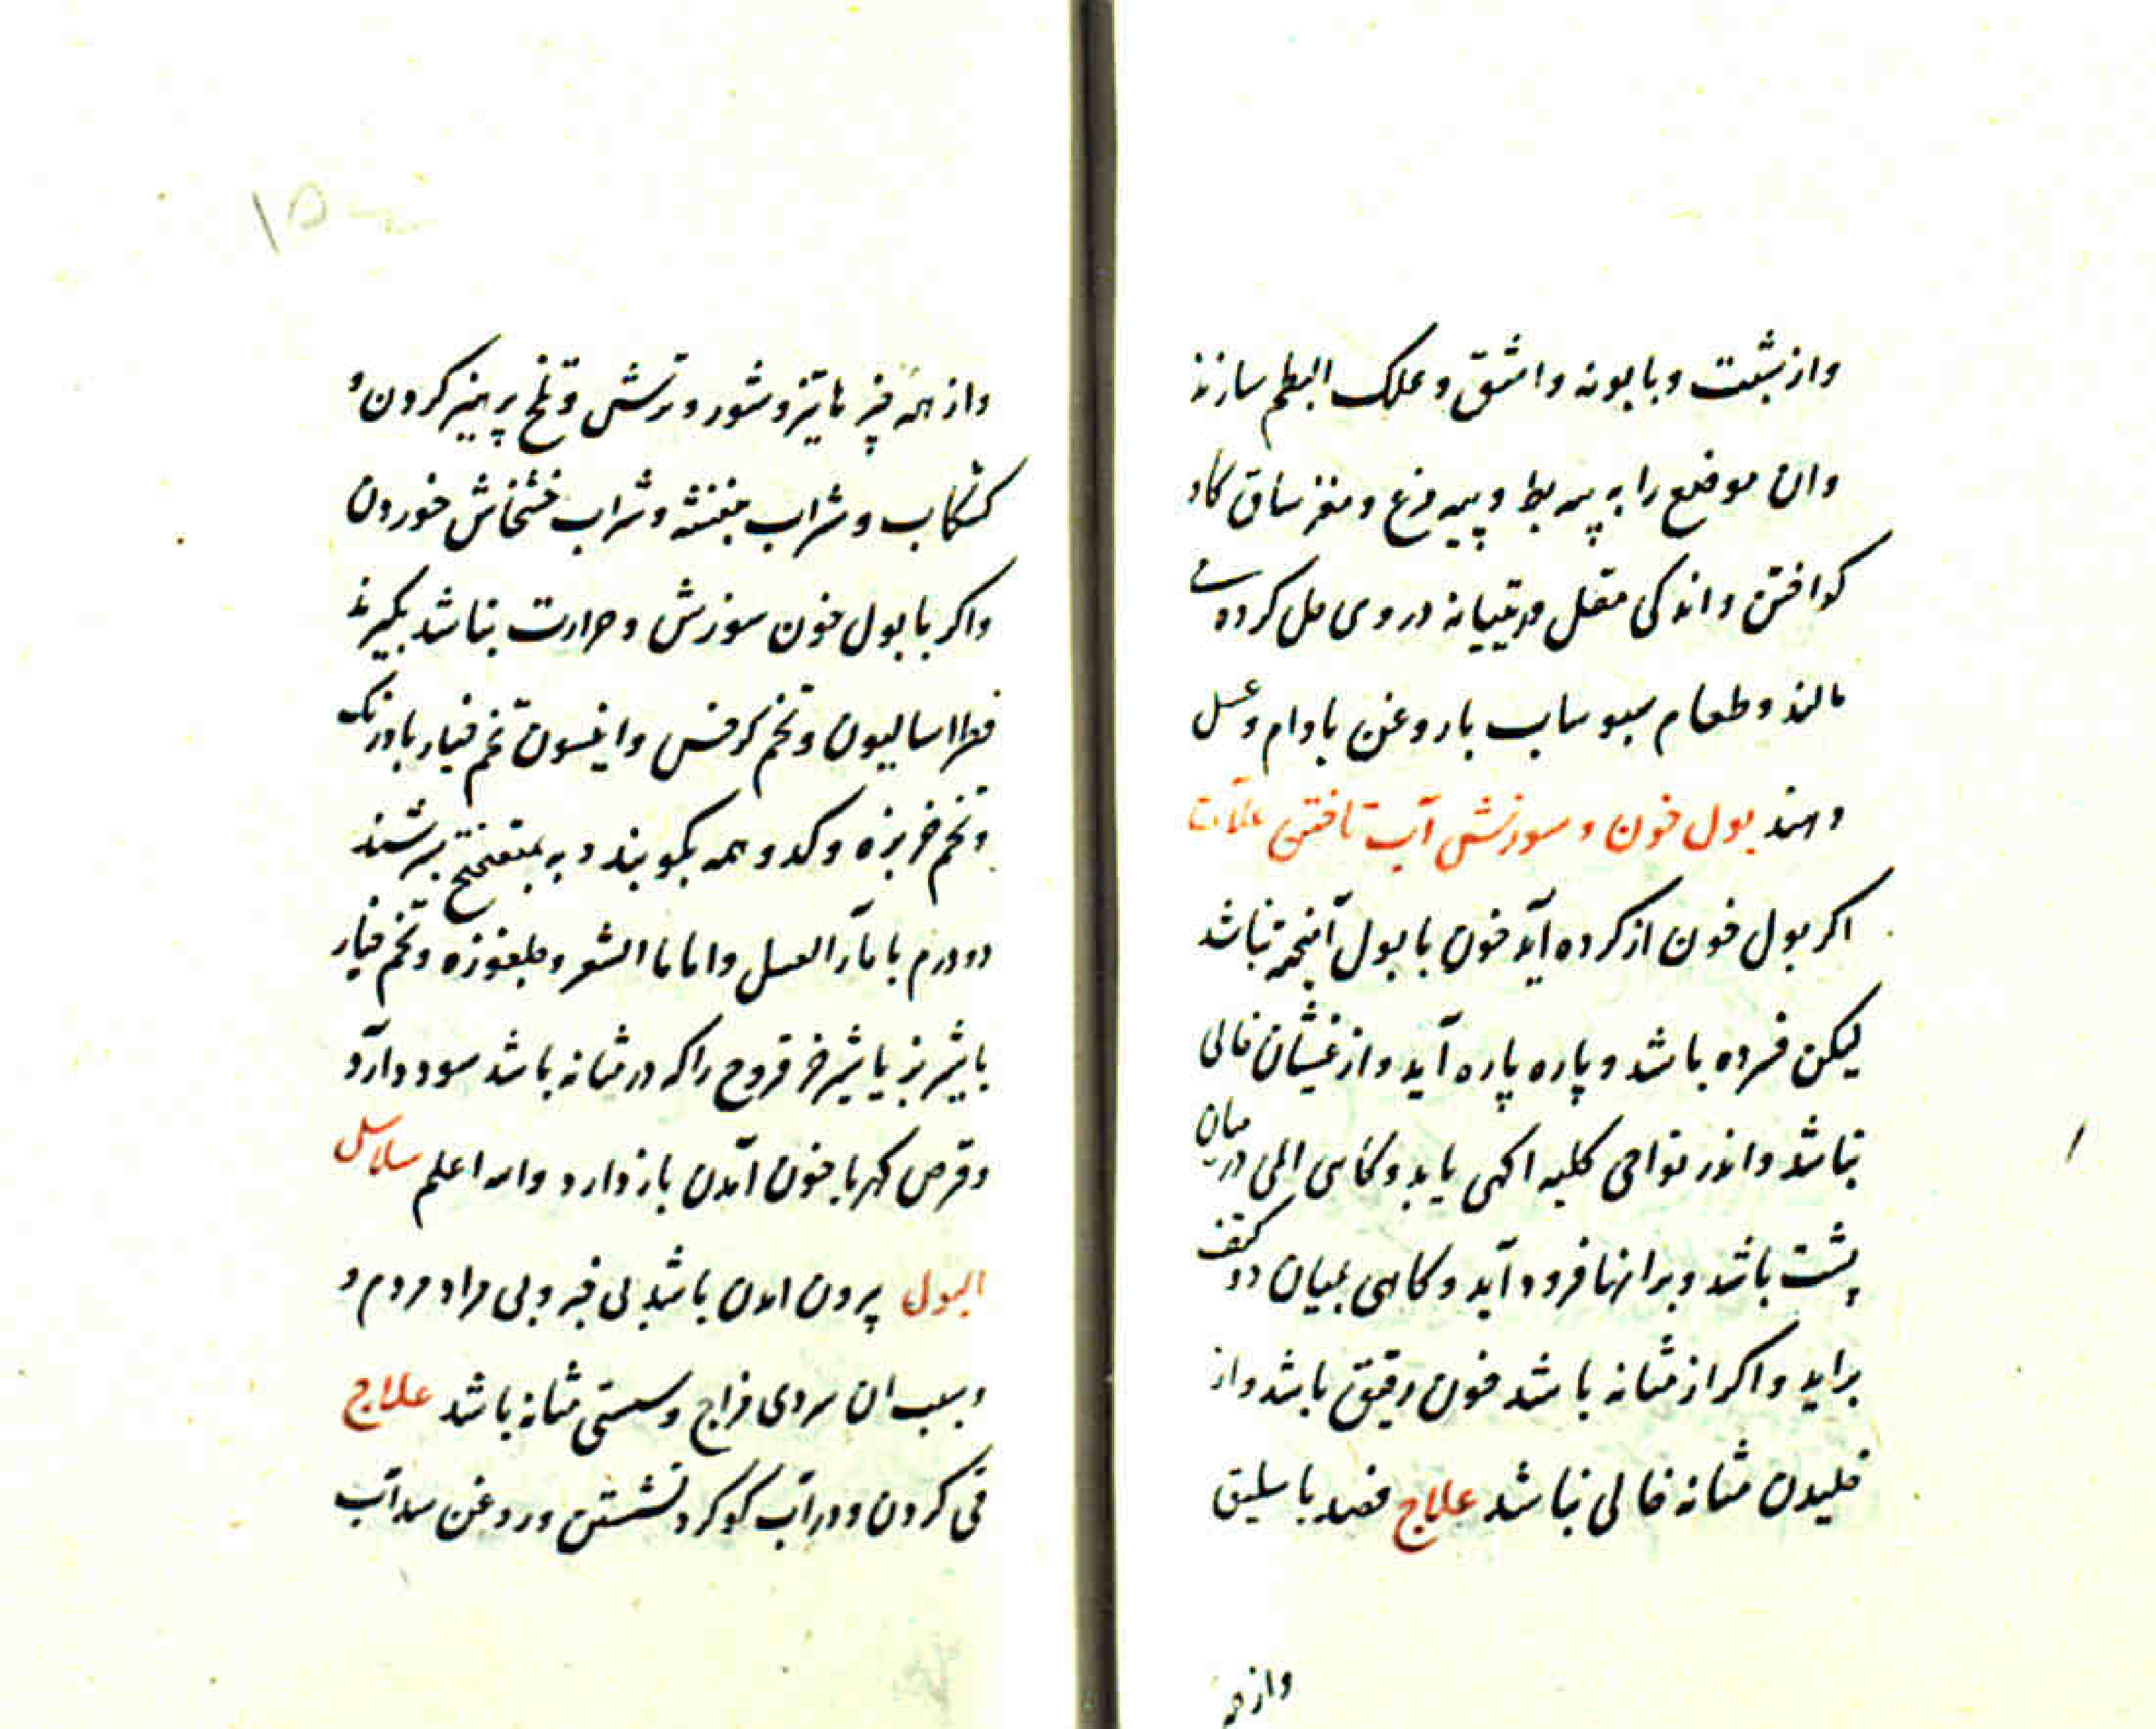 واز شبت و بابونه و اشق و علک البطم سازند
وان موضع را به پیه بط و پیه مرغ و مغز ساق کاو
کداختن و اندکی مقل و در وی حل کرده
مالند و طعام سبوساب با روغن بادام و عسل
دهند بول خون و سوزش آب تاختن علامت
اکر بول خون از کرده آید خون با بول آمیخته نباشد
لیکن فسرده باشد و پاره پاره آید و از غثیان خالی
نباشد و اندر نواحی کلیه اکهی یابد و کاهی المی در میان
پشت باشد و برانها فرود آید و کاهی بمیان دو کتف
براید و اکر از مثانه باشد خون رقیق باشد و از
خلیدن مثانه خالی نباشد علاج فصد باسلیق
واز همه
۱۵
واز همه چیزها تیز و شور و ترش و تلخ پرهیز کردن و
کشکاب و شراب بنفشه و شراب خشخاش خوردن
واکر با بول خون سوزش و حرارت نباشد بکیرند
فطراسالیون و تخم کرفس و انیسون تخم خیار بادرنک
وتخم خربزه و کدو همه بکوبند و به بسرشند
دو درم با ماء العسل و اما ما الشعر و جلغوزه و تخم خیار
با شیر بز یا شیر خر قروح را که در مثانه باشد سود دارد
وقرص کهربا خون آمدن باز دارد والله اعلم سلاسل
البول بیرون امدن باشد بی خبر و بی مراد مردم و
وسبب ان سردی مزاج و سستی مثانه باشد علاج
قی کردن و در آب کوکرد نشستن و روغن سداب